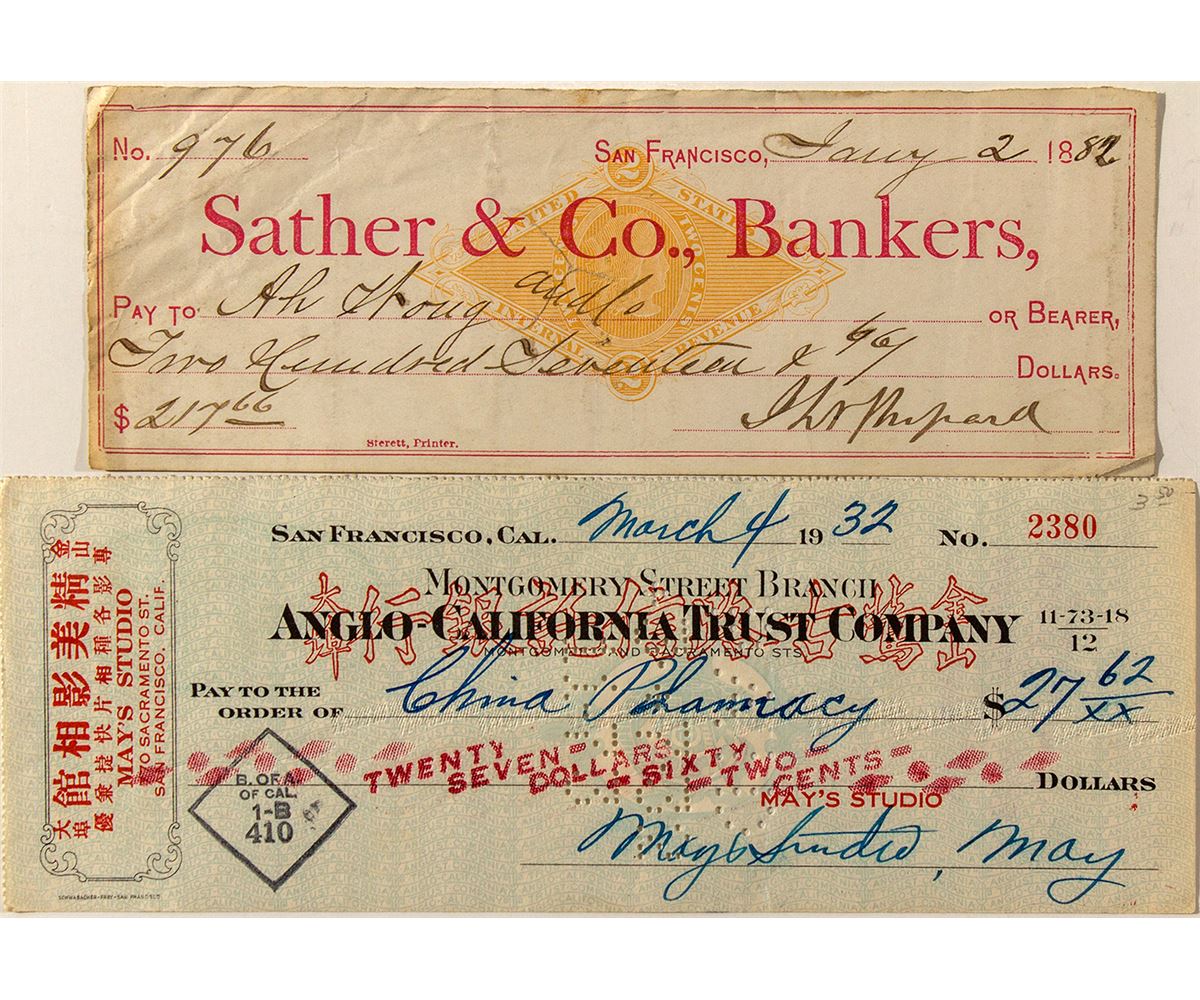 No. 976 San Francisco, Jany 2 1882
Sather & Co., Bankers,
UNITED STATES
TWO CENTS
INTERNAL REVENUE
2
2
Pay to Ah Wong or Bearer,
Two Hundred Seventeen & 66/ Dollars.
$ 217 66
Sterett, Printer.
3 50
San Francisco, Cal. March 4 1932 No. 2380
Montgomery Street Branch
行銀
Anglo-California Trust Company 11-73-18
12
MONTGOMERY AND SACRAMENTO STS.
Pay to the
Order of China Pharmacy $27 62
XX
TWENTY SEVEN DOLLARS SIXTY TWO CENTS Dollars
B. OF A.
OF CAL.
1-B
410
MAY'S STUDIO
May's Studio, May
金山
大埠
精美影相館
專影各種相片快捷兼優
MAY'S STUDIO
770 SACRAMENTO ST.
SAN FRANCISCO, CALIF.
SCHWABACHER-FREY-SAN FRANCISCO